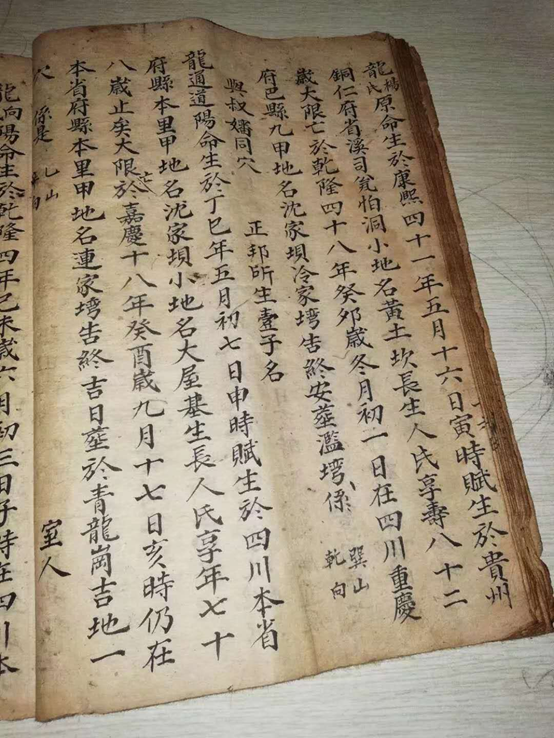 龍楊氏原命生於康熙四十一年五月十六日寅時賦生於貴州
銅仁府省溪司瓮怕洞小地名黃土坎長生人氏享壽八十二
歲大限亡於乾隆四十八年癸夘歲冬月初一日在四川重慶
府巴縣九甲地名沈家壩冷家塆告終安塟濫塆係 巽山 乾向
與叔嬸同穴 正邦所生壹子名
龍通道陽命生於丁巳年五月初七日申時賦生於四川本省
府縣本里甲地名沈家壩小地名大屋基生長人氏享年七十
八歲止矣大限亡於嘉慶十八年癸酉歲九月十七日亥時仍在
本省府縣本里甲地名連家塆告終吉日塟於青龍崗吉地一
穴 係是 乙山 室人
龍向陽命生於乾隆四年己未歲六月初三日子時在四川本